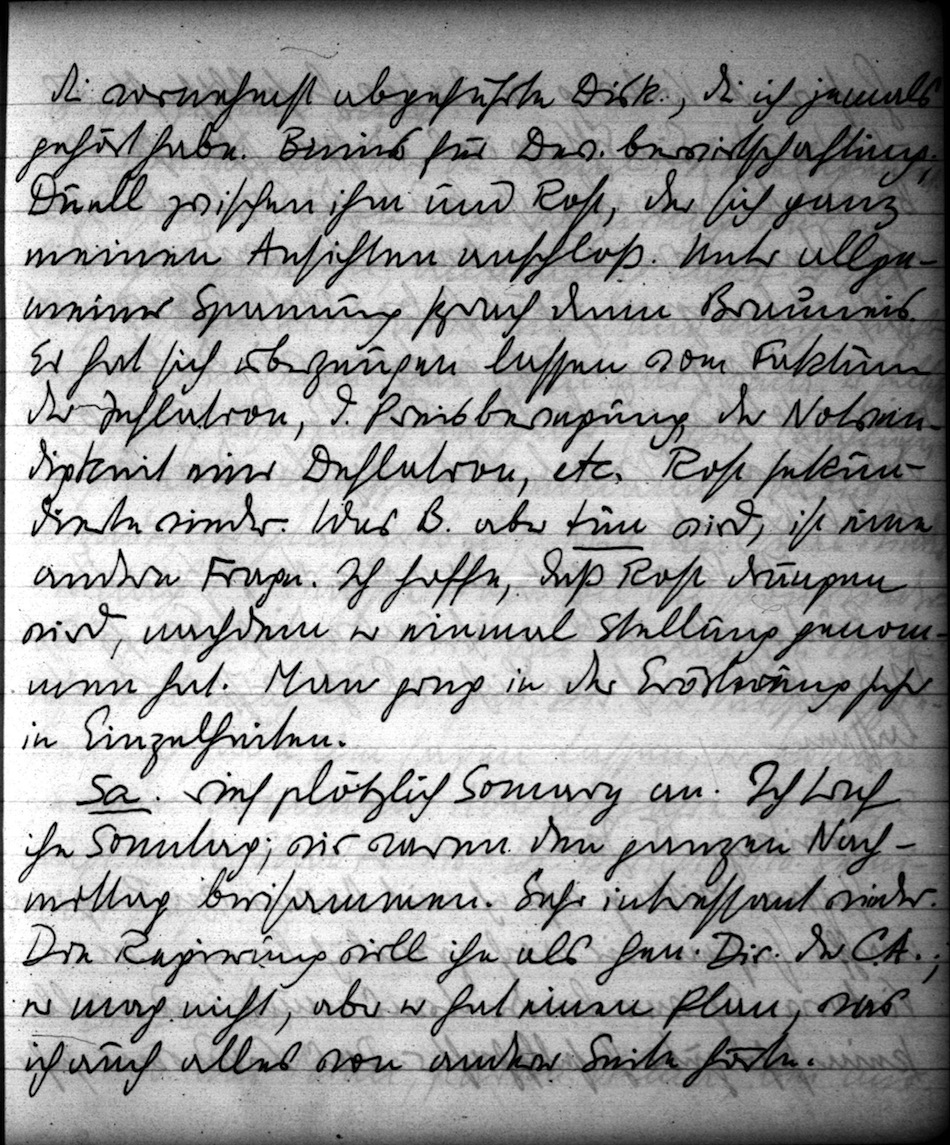 die vornehmst abgeführte Disk., die ich jemals
gehört habe. Brauneis für Dev. bewirtschaftung,
Duell zwischen ihm und Rost, der sich ganz
meinen Ansichten anschloß. Unter allge-
meiner Spannung sprach dann Brauneis.
Er hat sich überzeugen lassen vom Faktum
der Inflation, d. Preisbewegung, der Notwen-
digkeit einer Deflation, etc. Rost sekun-
dierte wieder. Was B. aber tun wird, ist eine
andere Frage. Ich hoffe, daß Rost drängen
wird, nachdem er einmal Stellung genom-
men hat. Man ging in der Erörterung sehr
in Einzelheiten.
Sa. rief plötzlich Somary an. Ich traf
ihn Sonntag; wir waren den ganzen Nach-
mittag beisammen. Sehr interessant wieder.
Die Regierung will ihn als Gen. Dir. der C.A.;
er mag nicht, aber er hat einen Plan, was
ich auch alles von anderer Seite hörte.